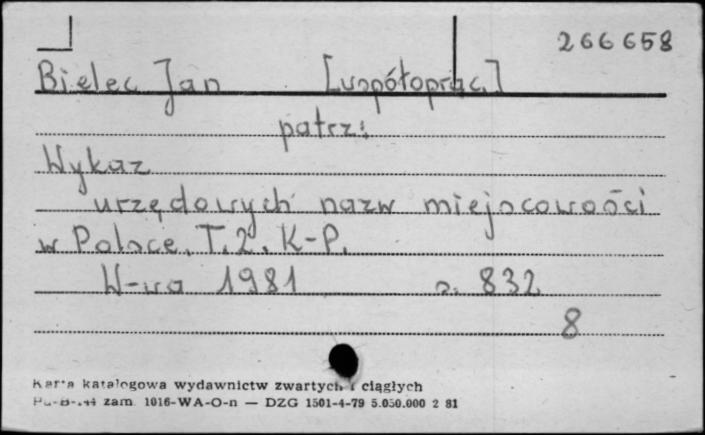 266658
Bielec Jan [współoprac.]
patrz:
Wykaz
urzędowych nazw miejscowości
w Polsce. T. 2. K-P.
W-wa 1981 s. 832
8
Karta katalogowa wydawnictw zwartych i ciągłych
zam. 1016-WA-O-n — DZG 1501-4-79 5.050.000 2 81